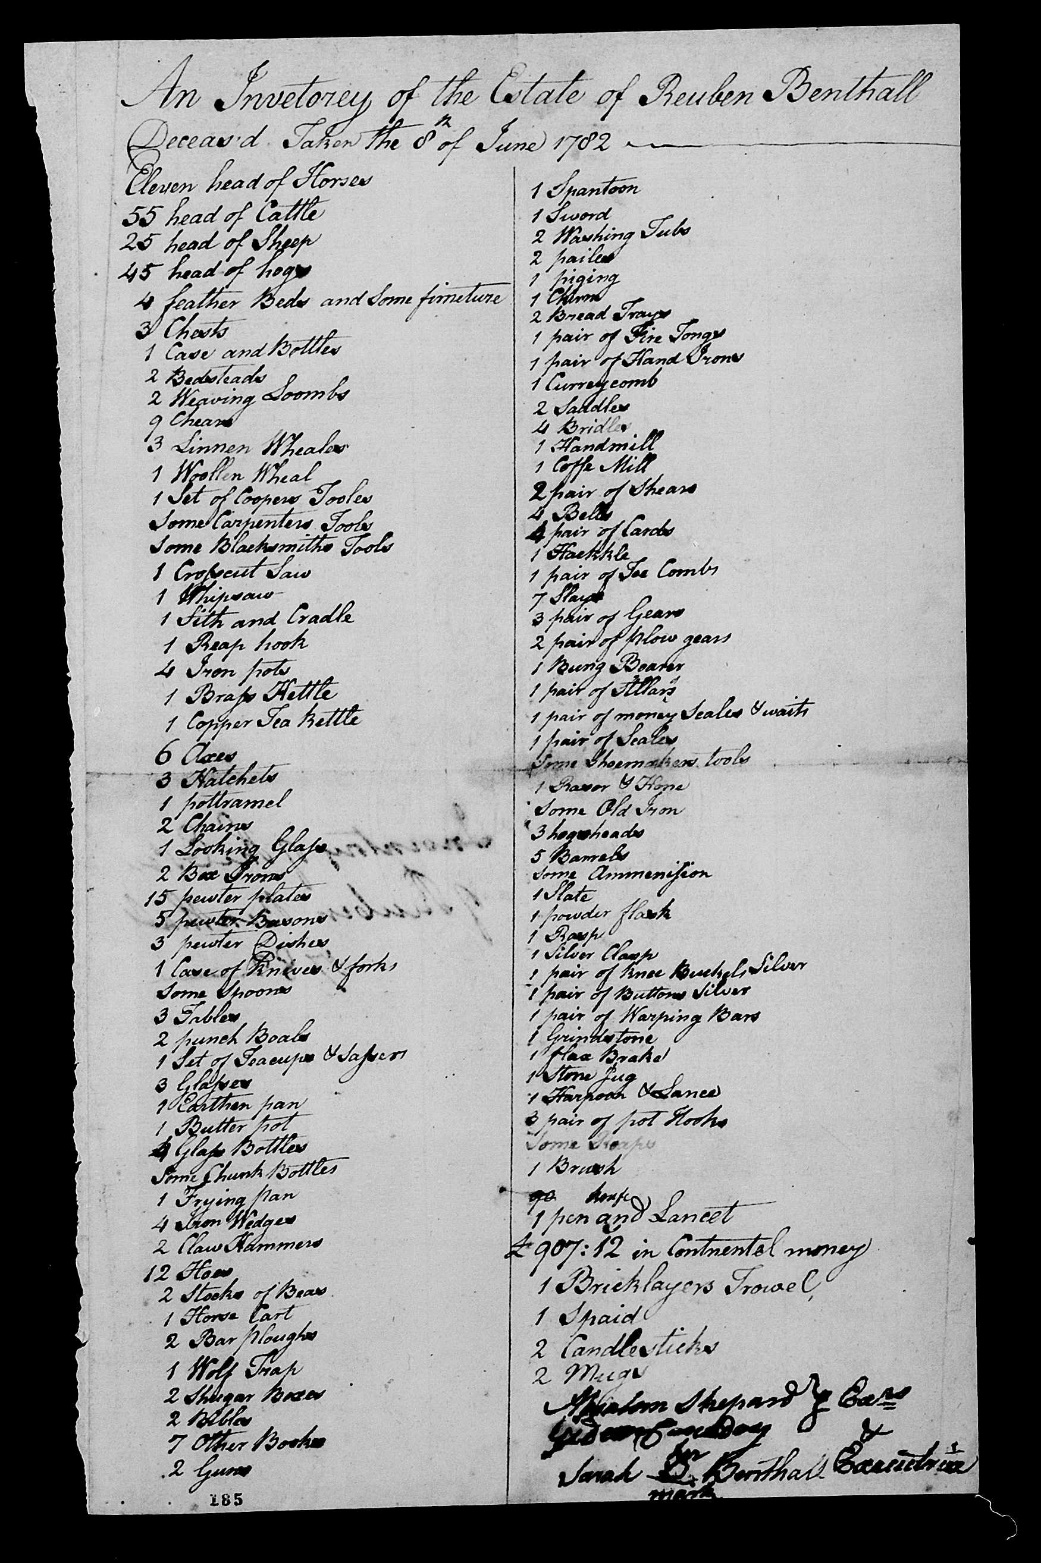 An Invetorey of the Estate of Reuben Benthall
Deceas'd Taken the 8th of June 1782
Eleven head of Horses
55 head of Cattle
25 head of Sheep
45 head of hogs
4 feather Beds and Some firneture
3 Chests
1 Case and Bottles
2 Bedsteads
2 Weaving Loombs
9 Chears
3 Linnen Wheales
1 Woollen Wheal
1 Set of Coopers Tooles
Some Carpenters Tools
Some Blacksmiths Tools
1 Crosscut Saw
1 Whipsaw
1 Sith and Cradle
1 Reap hook
4 Iron pots
1 Brass Kettle
1 Copper Tea kettle
6 Axes
3 Hatchets
1 pottramel
2 Chains
1 Looking Glass
2 Box Irons
15 pewter plates
5 pewter Basons
3 pewter Dishes
1 Case of Knives & forks
Some Spoons
3 Tables
2 punch Boals
1 Set of Teacups & Sassers
3 Glasses
1 Earthen pan
1 Butter pot
4 Glass Bottles
Some Chunk Bottles
1 Frying pan
4 Iron Wedges
2 Claw Hammers
12 Hoes
2 Stocks of Beas
1 Horse Cart
2 Bar ploughs
1 Wolf Trap
2 Shugar Boxes
2 Bibles
7 Other Books
2 Guns
185
1 Spantoon
1 Sword
2 Washing Tubs
2 pailes
1 piging
1 Churn
2 Bread Trays
1 pair of Fire Tongs
1 pair of Hand Irons
1 Curreycomb
2 Saddles
4 Bridles
1 Handmill
1 Coffe Mill
2 pair of Shears
4 Bells
4 pair of Cards
1 Hackkle
1 pair of Toe Combs
7 Slays
3 pair of Gears
2 pair of plow gears
1 Bung Boarer
1 pair of
1 pair of money Scales & waits
1 pair of Scales
Some Shoemakers tools
1 Rasor & Hone
Some Old Iron
3 hogsheads
5 Barrels
Some Ammenission
1 Slate
1 powder flask
1 Rasp
1 Silver Clasp
1 pair of knee Buckels Silver
1 pair of Buttons Silver
1 pair of Warping Bars
1 Grindstone
1 flax Brake
1 Stone Jug
1 Harpoon & Lance
3 pair of pot Hooks
Some
1 Brush
1 pen and Lancet
£907:12 in Contnentel money
1 Bricklayers Trowel
1 Spaid
2 Candlesticks
2 Mugs
Absalom Shepard } Exrs
&
Sarah B Benthall Executrix
mark